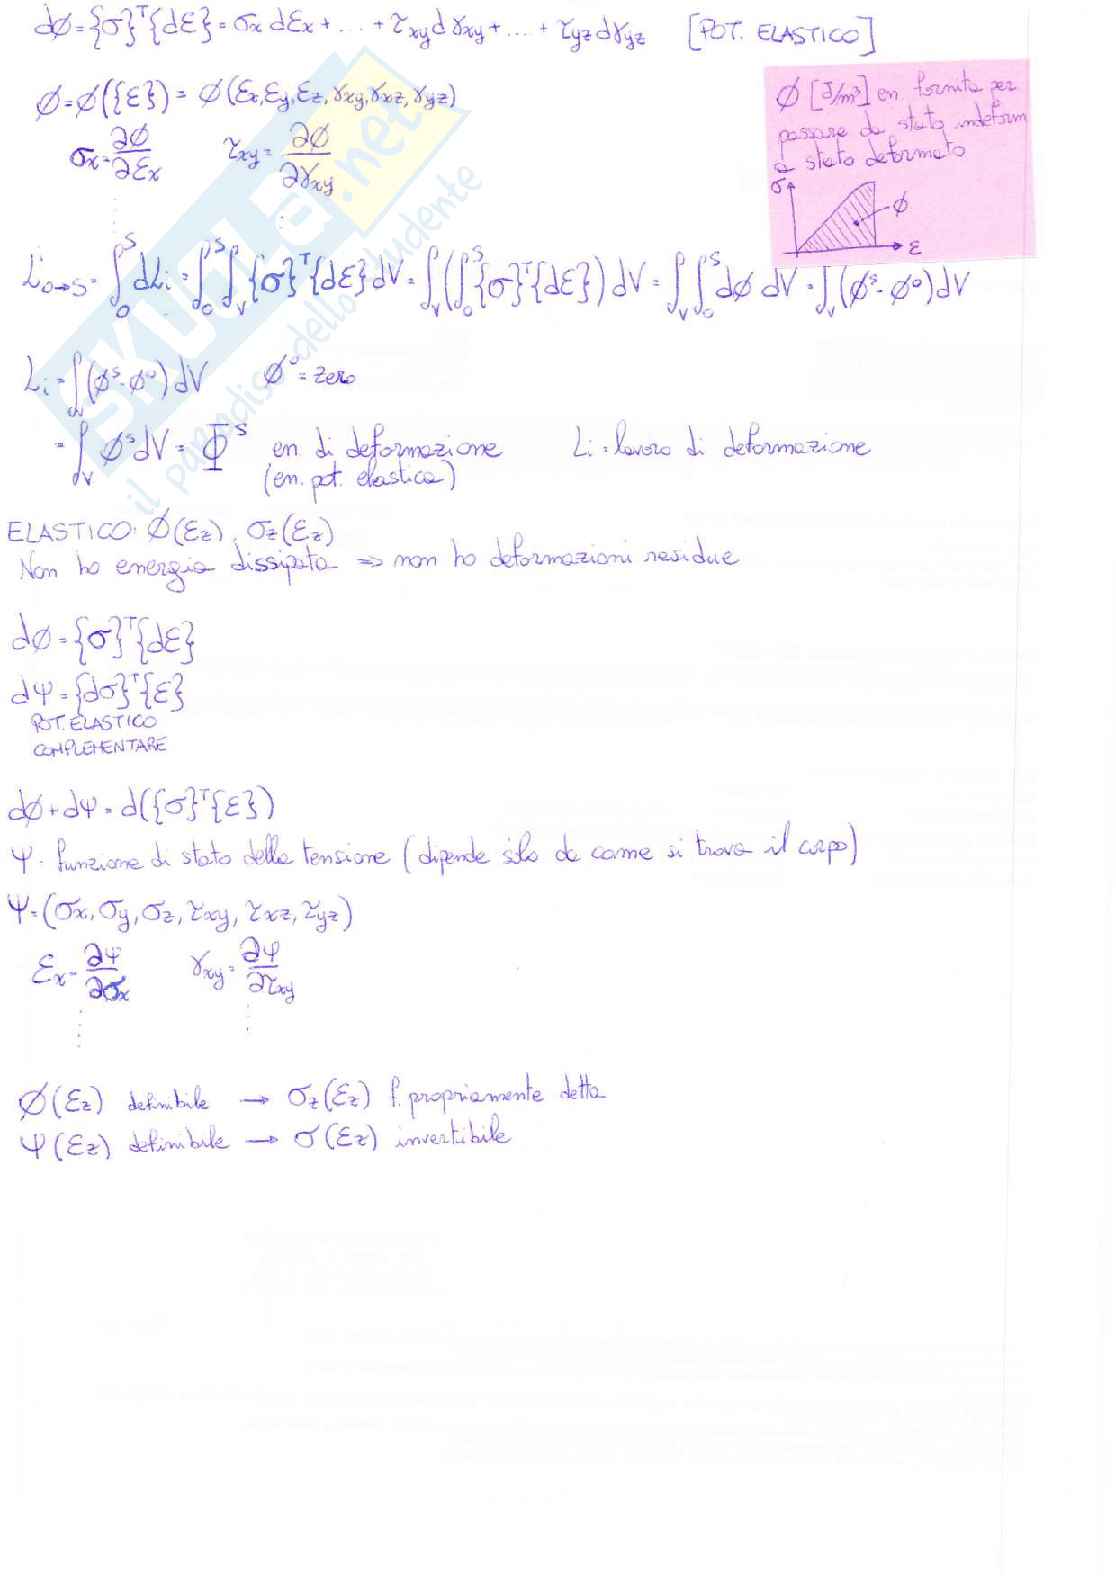 dφ={σ}ᵀ{dε}=σx dεx+...+τxy dγxy+...+τyz dγyz [POT. ELASTICO]
φ=φ({ε})=φ(εx,εy,εz,γxy,γxz,γyz)
σx=∂φ/∂εx τxy=∂φ/∂γxy
φ [J/m³] en fornita per
passare da stato indeform
a stato deformato
σ φ ε
L i₀→s = ∫₀ˢ dLi = ∫₀ˢ∫v {σ}ᵀ{dε}dV = ∫v(∫₀ˢ{σ}ᵀ{dε})dV = ∫v∫₀ˢ dφ dV = ∫v(φˢ-φ⁰)dV
Li=∫dV(φˢ-φ⁰)dV φ⁰=zero
=∫dV φˢdV=Φˢ en di deformazione Li=lavoro di deformazione
(en. pot. elastica)
ELASTICO: φ(εz), σz(εz)
Non ho energia dissipata => non ho deformazioni residue
dφ={σ}ᵀ{dε}
dψ={dσ}ᵀ{ε}
POT. ELASTICO
COMPLEMENTARE
dφ+dψ=d({σ}ᵀ{ε})
ψ. funzione di stato della tensione (dipende solo da come si trova il corpo)
ψ=(σx,σy,σz,τxy,τxz,τyz)
εx=∂ψ/∂σx γxy=∂ψ/∂τxy
φ(εz) definibile → σz(εz) f. propriamente detta
ψ(εz) definibile → σ(εz) invertibile
SKUOLA.net
il paradiso dello studente